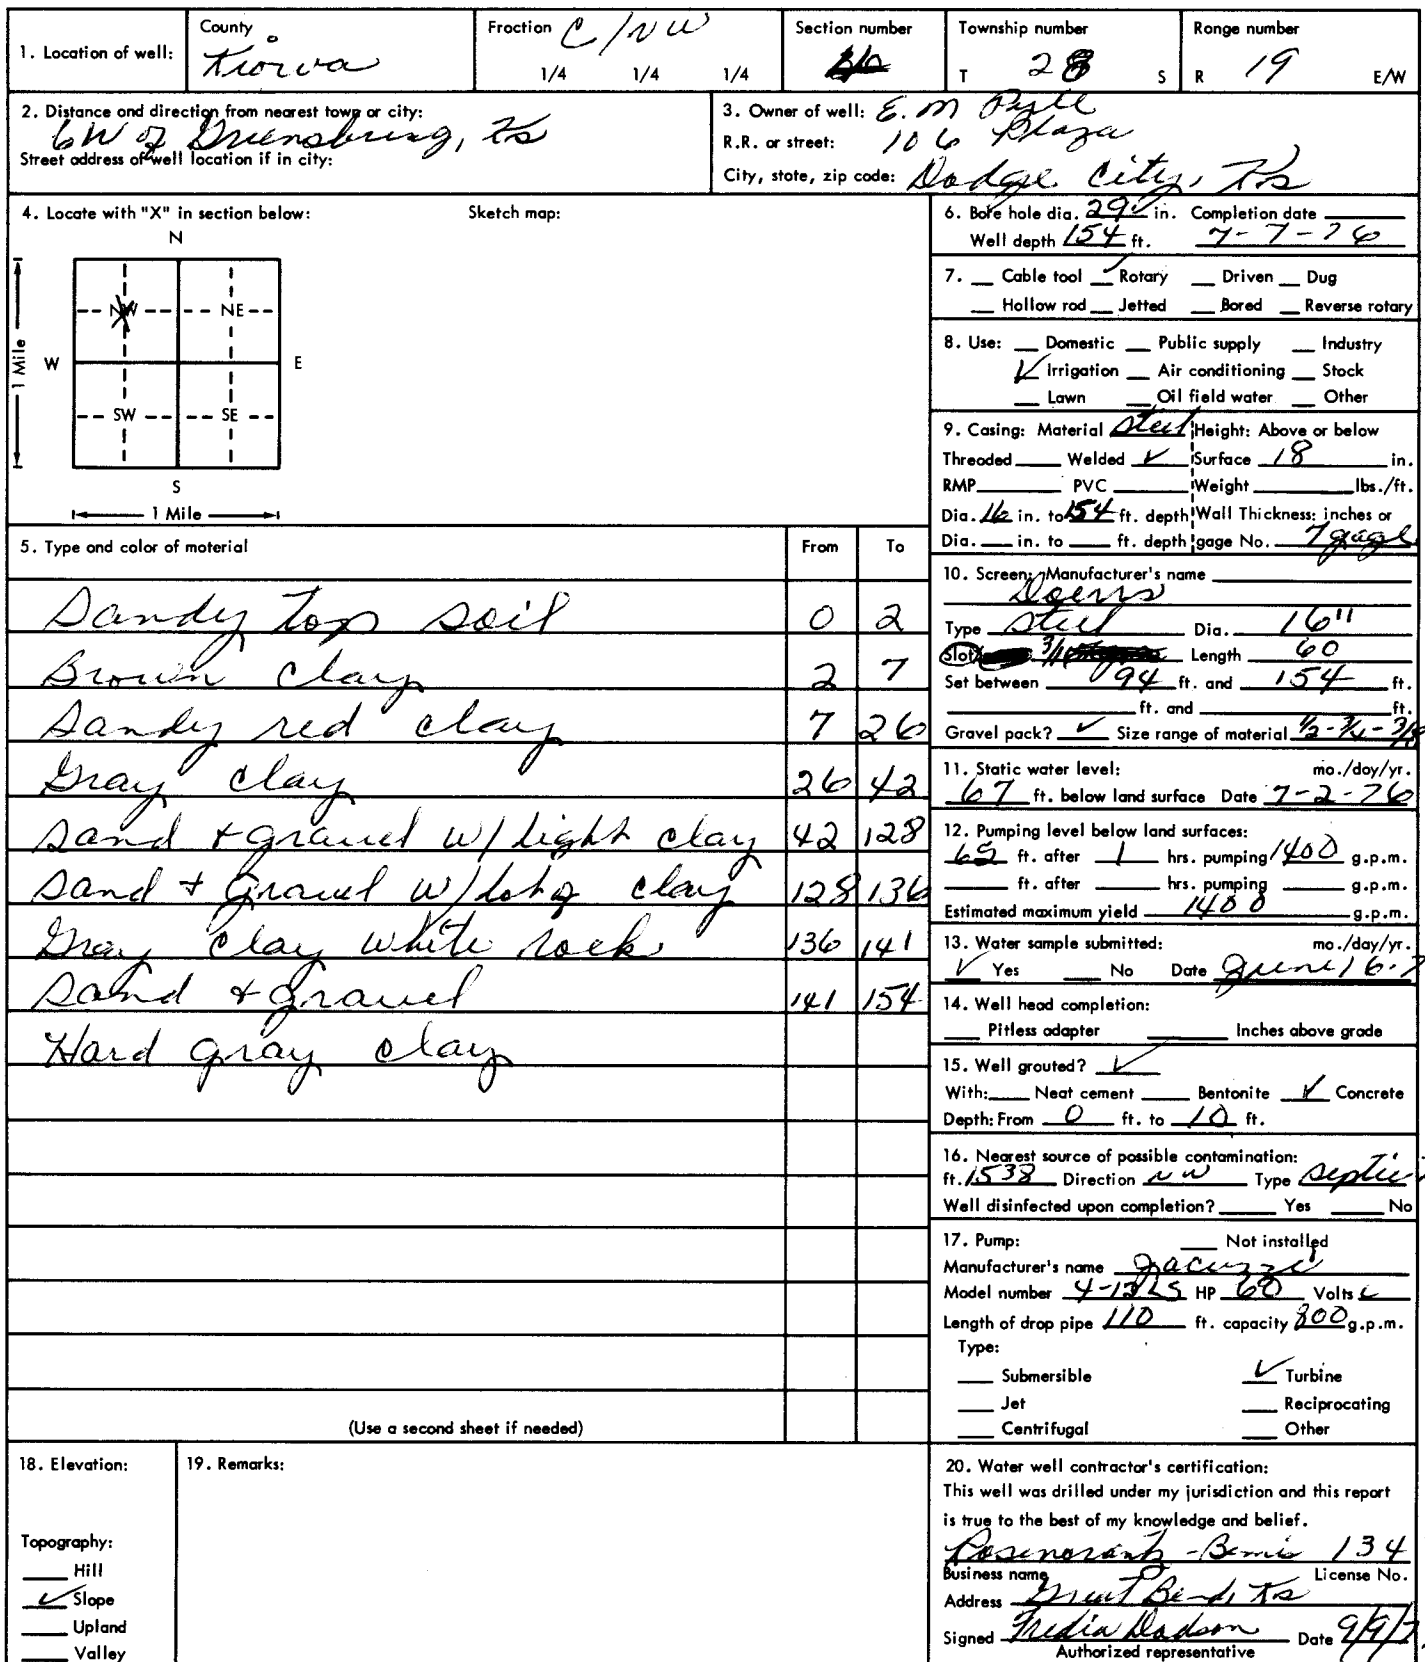 1. Location of well: County Kiowa Fraction C/NW 1/4 1/4 1/4 Section number Township number T 28 S Range number R 19 E/W
2. Distance and direction from nearest town or city:
6W of Greensburg, Ks
Street address of well location if in city:
3. Owner of well: E. M Pyle
R.R. or street: 106 Plaza
City, state, zip code: Dodge City, Ks
4. Locate with "X" in section below: Sketch map:
N
NW NE
W E
1 Mile
SW SE
S
1 Mile
5. Type and color of material From To
Sandy top soil 0 2
Brown clay 2 7
Sandy red clay 7 26
Gray clay 26 42
Sand + gravel w/ light clay 42 128
Sand + Gravel w/ clay 128 136
Gray clay white rock 136 141
Sand + gravel 141 154
Hard gray clay
(Use a second sheet if needed)
6. Bore hole dia. 29 in. Completion date
Well depth 154 ft. 7-7-76
7. Cable tool ✓ Rotary Driven Dug
Hollow rod Jetted Bored Reverse rotary
8. Use: Domestic Public supply Industry
✓ Irrigation Air conditioning Stock
Lawn Oil field water Other
9. Casing: Material Steel Height: Above or below
Threaded Welded ✓ Surface 18 in.
RMP PVC Weight lbs./ft.
Dia. 16 in. to 154 ft. depth Wall Thickness: inches or
Dia. in. to ft. depth gage No. 7 gage
10. Screen: Manufacturer's name
Doerrs
Type Steel Dia. 16"
Slot Length 60
Set between 94 ft. and 154 ft.
ft. and ft.
Gravel pack? ✓ Size range of material
11. Static water level: mo./day/yr.
67 ft. below land surface Date 7-2-76
12. Pumping level below land surfaces:
ft. after 1 hrs. pumping 1400 g.p.m.
ft. after hrs. pumping g.p.m.
Estimated maximum yield 1400 g.p.m.
13. Water sample submitted: mo./day/yr.
✓ Yes No Date June 16-7
14. Well head completion:
Pitless adapter Inches above grade
15. Well grouted? ✓
With: Neat cement Bentonite ✓ Concrete
Depth: From 0 ft. to 10 ft.
16. Nearest source of possible contamination:
ft. 1538 Direction NW Type septic
Well disinfected upon completion? Yes No
17. Pump: Not installed
Manufacturer's name Jacuzzi
Model number HP 60 Volts
Length of drop pipe 110 ft. capacity 800 g.p.m.
Type:
Submersible ✓ Turbine
Jet Reciprocating
Centrifugal Other
18. Elevation:
Topography:
Hill
✓ Slope
Upland
Valley
19. Remarks:
20. Water well contractor's certification:
This well was drilled under my jurisdiction and this report
is true to the best of my knowledge and belief.
Rosencrantz-Bemis 134
Business name License No.
Address Great Bend, Ks
Signed Fredia Dodson Date 9/9/7
Authorized representative